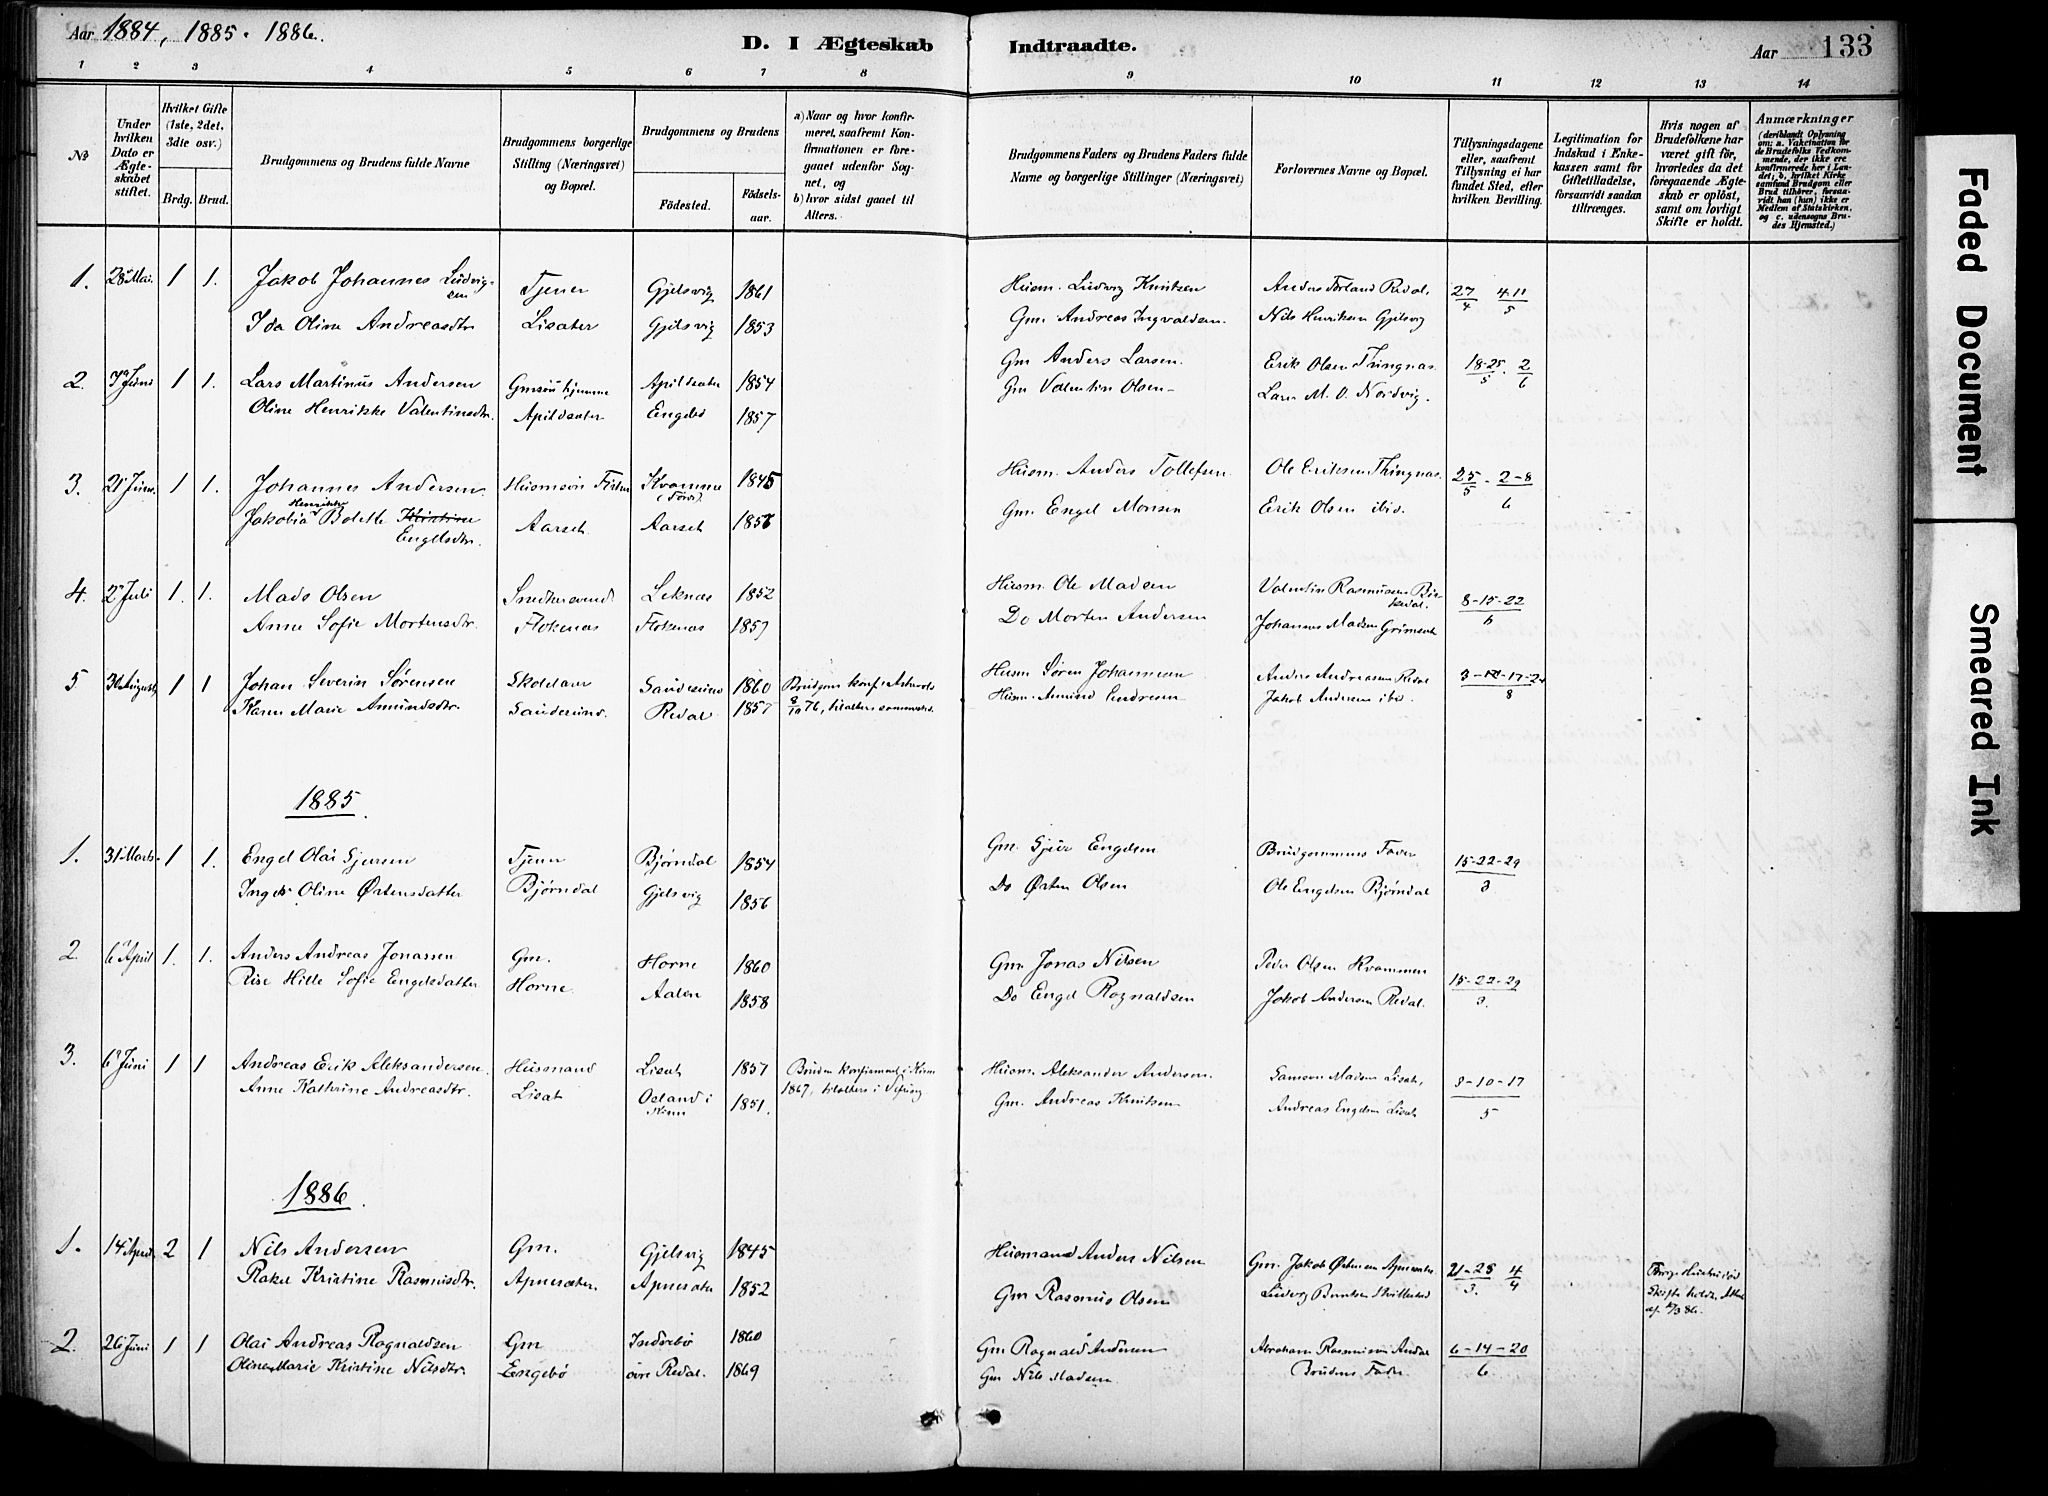 Aar 1884, 1885. 1886.
D. I Ægteskab Indtraadte.
Aar 133
1 2 3 4 5 6 7 8 9 10 11 12 13 14
No
Under hvilken Dato er Ægteskabet stiftet.
Hvilket Gifte (1ste, 2det, 3die osv.)
Brdg. Brud.
Brudgommens og Brudens fulde Navne
Brudgommens borgerlige Stilling (Næringsvei) og Bopæl.
Brudgommens og Brudens
Fødested. Fødselsaar.
a) Naar og hvor konfirmeret, saafremt Konfirmationen er foregaaet udenfor Sognet, og
b) hvor sidst gaaet til Alters.
Brudgommens Faders og Brudens Faders fulde Navne og borgerlige Stillinger (Næringsvei)
Forlovernes Navne og Bopæl.
Tillysningsdagene eller, saafremt Tillysning ei har fundet Sted, efter hvilken Bevilling.
Legitimation for Indskud i Enkekassen samt for Giftetilladelse, forsaavidt saadan tiltrænges.
Hvis nogen af Brudefolkene har været gift før, hvorledes da det foregaaende Ægteskab er opløst, samt om lovligt Skifte er holdt.
Anmærkninger
(deriblandt Oplysning om: a. Vakcination for de Brudefolks Vedkommende, der ikke ere konfirmerede her i Landet; b. hvilket Kirkesamfund Brudgom eller Brud tilhører, forsaavidt han (hun) ikke er Medlem af Statskirken, og c. udensogns Brudes Hjemsted.)
1. 28 Mai. 1 1. Jakob Johannes Ludvigsen Tjener Gjelsvig 1861 Husm. Ludvig Knutsen Anders Førland Redal, 27/4 4-11/5
Ida Oline Andreasdtr Lisæter Gjelsvig 1853 Gm. Andreas Ingvaldsen. Nils Henriksen Gjelsvig
2. 7 Juni 1 1. Lars Martinus Andersen Gmsøn hjemme Apildsæter 1854 Gm Anders Larsen. Erik Olsen Thingnæs. 18-25/5. 2/6
Oline Henrikke Valentinsdtr. Apildsæter Engebø 1857 Gm Valentin Olsen Lars M. O. Nordvig.
3. 21 Juni. 1 1. Johannes Andersen Husmsøn Fisker Kvamme (Førde). 1845 Husm. Anders Tollefsen. Ole Eriksen Thingnæs. 25/5 - 2-8/6
Jakobia Henrikke Bolette Kristine Engelsdtr. Aarset. Aarset 1856 Gm. Engel Monsen Erik Olsen ibid.
4. 2 Juli 1. 1. Mads Olsen Snedkersvend. Leknæs 1852 Husm. Ole Madsen Valentin Rasmussen Birkedal. 8-15-22/6
Anne Sofie Mortensdtr. Flokenæs Flokenæs 1857 Do Morten Andersen Johannes Madsen Grimset
5 30 August 1 1 Johan Severin Sørensen Skolelærer Sandesund 1860 Brudgom konf. i Askvold Husm Søren Johannesen Anders Andreassen Redal 3-10-17-24/8
Karen Marie Amundsdtr. Sandesund. Redal 1857 8/10 76, tilalters sammesteds. Husm. Amund Endresen Jakob Andersen ibid.
1885.
1. 31 Marts. 1 1. Engel Olai Sjursen Tjener Bjørndal 1854 Gm. Sjur Engelsen Brudgommens Fader 15-22-29/3
Inger Oline Østensdatter Bjørndal Gjelsvig 1856 Do Østen Olsen Ole Engelsen Bjørndal
2. 6 April 1. 1. Anders Andreas Jonassen Gm. Horne 1860 Gm. Jonas Nilsen Peder Olsen Kvammen 15-22-29/3.
Rise Hille Sofie Engelsdatter Horne. Aalen 1858 Do Engel Ragnaldsen Jakob Andersen Redal.
3. 6 Juni 1 1 Andreas Erik Aleksandersen. Husmand Lisæt 1857 Bruden konfirmeret i Kinn Husm. Aleksander Andersen. Samson Madsen Lisæt, 3-10-17/5
Anne Kathrine Andreasdtr. Lisæt Osland i Kinn 1851. 1867, tilalters i Gm. Andreas Knutsen Andreas Engelsen Lisæt
1886.
1. 14 April 2 1 Nils Andersen Gm. Gjelsvig 1845 Husmand Anders Nilsen Gm. Jakob Østensen Apnesæter. 21-28/3. 4/4
Rakel Kristine Rasmusdtr. Apnesæter. Apnesæter 1852 Gm Rasmus Olsen Ludvig Berntsen
Forrige Hustru død Skifte holdt, Attest af /3 86.
2. 26 Juni 1 1 Olai Andreas Ragnaldsen Gm Indrebø 1860 Gm Ragnald Andersen Abraham Rasmussen Ardal 6-14-20/6
Oline Marie Kristine Nilsdtr. Engebø øvre Redal. 1869 Gm Nils Madsen. Brudens Fader
Faded Document
Smeared Ink